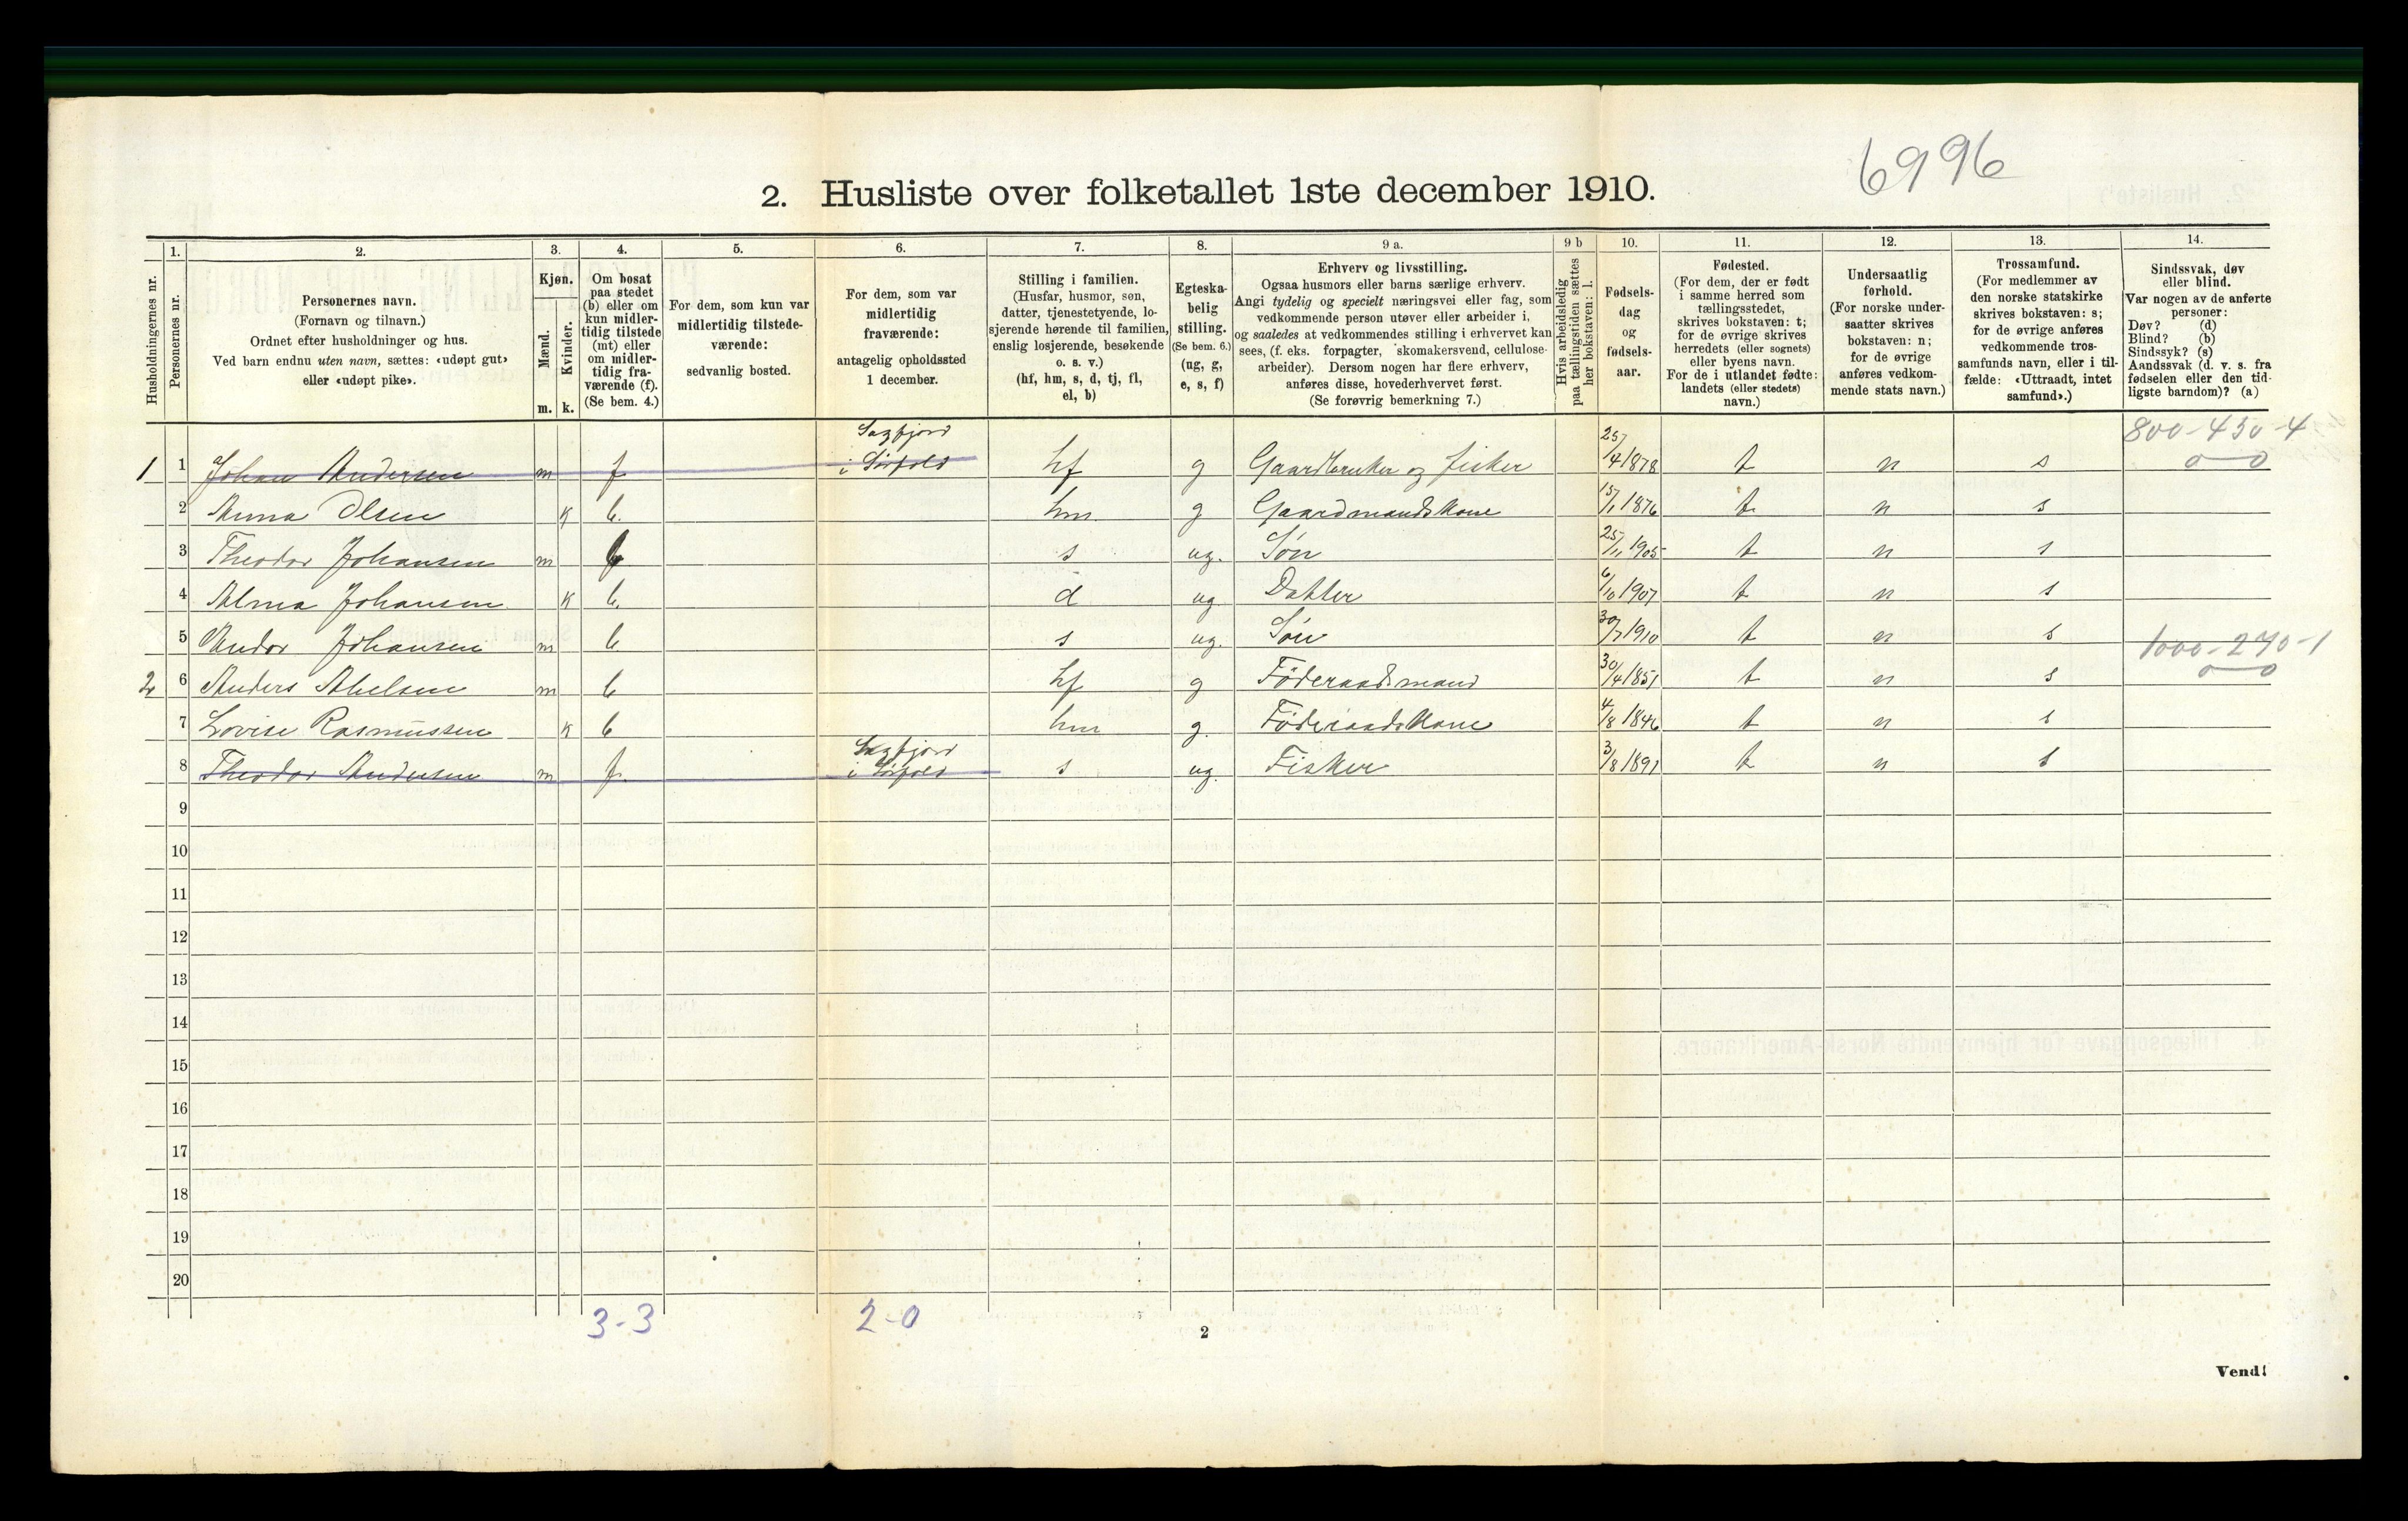 6996
2. Husliste over folketallet 1ste december 1910.
Husholdningernes nr.
1.
Personernes nr.
2.
Personernes navn.
(Fornavn og tilnavn.)
Ordnet efter husholdninger og hus.
Ved barn endnu uten navn, sættes: «udøpt gut»
eller «udøpt pike».
3.
Kjøn.
Mænd.
Kvinder.
m. k.
4.
Om bosat
paa stedet
(b) eller om
kun midler-
tidig tilstede
(mt) eller
om midler-
tidig fra-
værende (f).
(Se bem. 4.)
5.
For dem, som kun var
midlertidig tilstede-
værende:
sedvanlig bosted.
6.
For dem, som var
midlertidig
fraværende:
antagelig opholdssted
1 december.
7.
Stilling i familien.
(Husfar, husmor, søn,
datter, tjenestetyende, lo-
sjerende hørende til familien,
enslig losjerende, besøkende
o. s. v.)
(hf, hm, s, d, tj, fl,
el, b)
8.
Egteska-
belig
stilling.
(Se bem. 6.)
(ug, g,
e, s, f)
9 a.
Erhverv og livsstilling.
Ogsaa husmors eller barns særlige erhverv.
Angi tydelig og specielt næringsvei eller fag, som
vedkommende person utøver eller arbeider i,
og saaledes at vedkommendes stilling i erhvervet kan
sees, (f. eks. forpagter, skomakersvend, cellulose-
arbeider). Dersom nogen har flere erhverv,
anføres disse, hovederhvervet først.
(Se forøvrig bemerkning 7.)
9 b
Hvis arbeidsledig
paa tællingstiden sættes
her bokstaven: l.
10.
Fødsels-
dag
og
fødsels-
aar.
11.
Fødested.
(For dem, der er født
i samme herred som
tællingsstedet,
skrives bokstaven: t;
for de øvrige skrives
herredets (eller sognets)
eller byens navn.
For de i utlandet fødte:
landets (eller stedets)
navn.)
12.
Undersaatlig
forhold.
(For norske under-
saatter skrives
bokstaven: n;
for de øvrige
anføres vedkom-
mende stats navn.)
13.
Trossamfund.
(For medlemmer av
den norske statskirke
skrives bokstaven: s;
for de øvrige anføres
vedkommende tros-
samfunds navn, eller i til-
fælde: «Uttraadt, intet
samfund».)
14.
Sindssvak, døv
eller blind.
Var nogen av de anførte
personer:
Døv? (d)
Blind? (b)
Sindssyk? (s)
Aandssvak (d. v. s. fra
fødselen eller den tid-
ligste barndom)? (a)
800-450-4
0 0
1 1 Johan Andersen m f Sagfjord i Sørfold hf g Gaardbruker og fisker 25/4 1878 t n s
2 Anna Olsen k b. hm g Gaardmandskone 15/1 1876 t n s
3 Theodor Johansen m b s ug. Søn 25/11 1905 t n s
4 Alma Johansen k b. d ug Datter 6/10 1907 t n s
5 Andor Johansen m b s ug. Søn 30/7 1910 t n s
1000-270-1
0 0
2 6 Anders Abelsen m b hf g Føderaadsmand 30/4 1851 t n s
7 Lovise Rasmussen k b hm g. Føderaadskone 4/8 1846 t n s
8 Theodor Andersen m f. Sagfjord i Sørfold s ug. Fisker 3/8 1891 t n s
9
10
11
12
13
14
15
16
17
18
19
20
3-3 2-0
2
Vend!